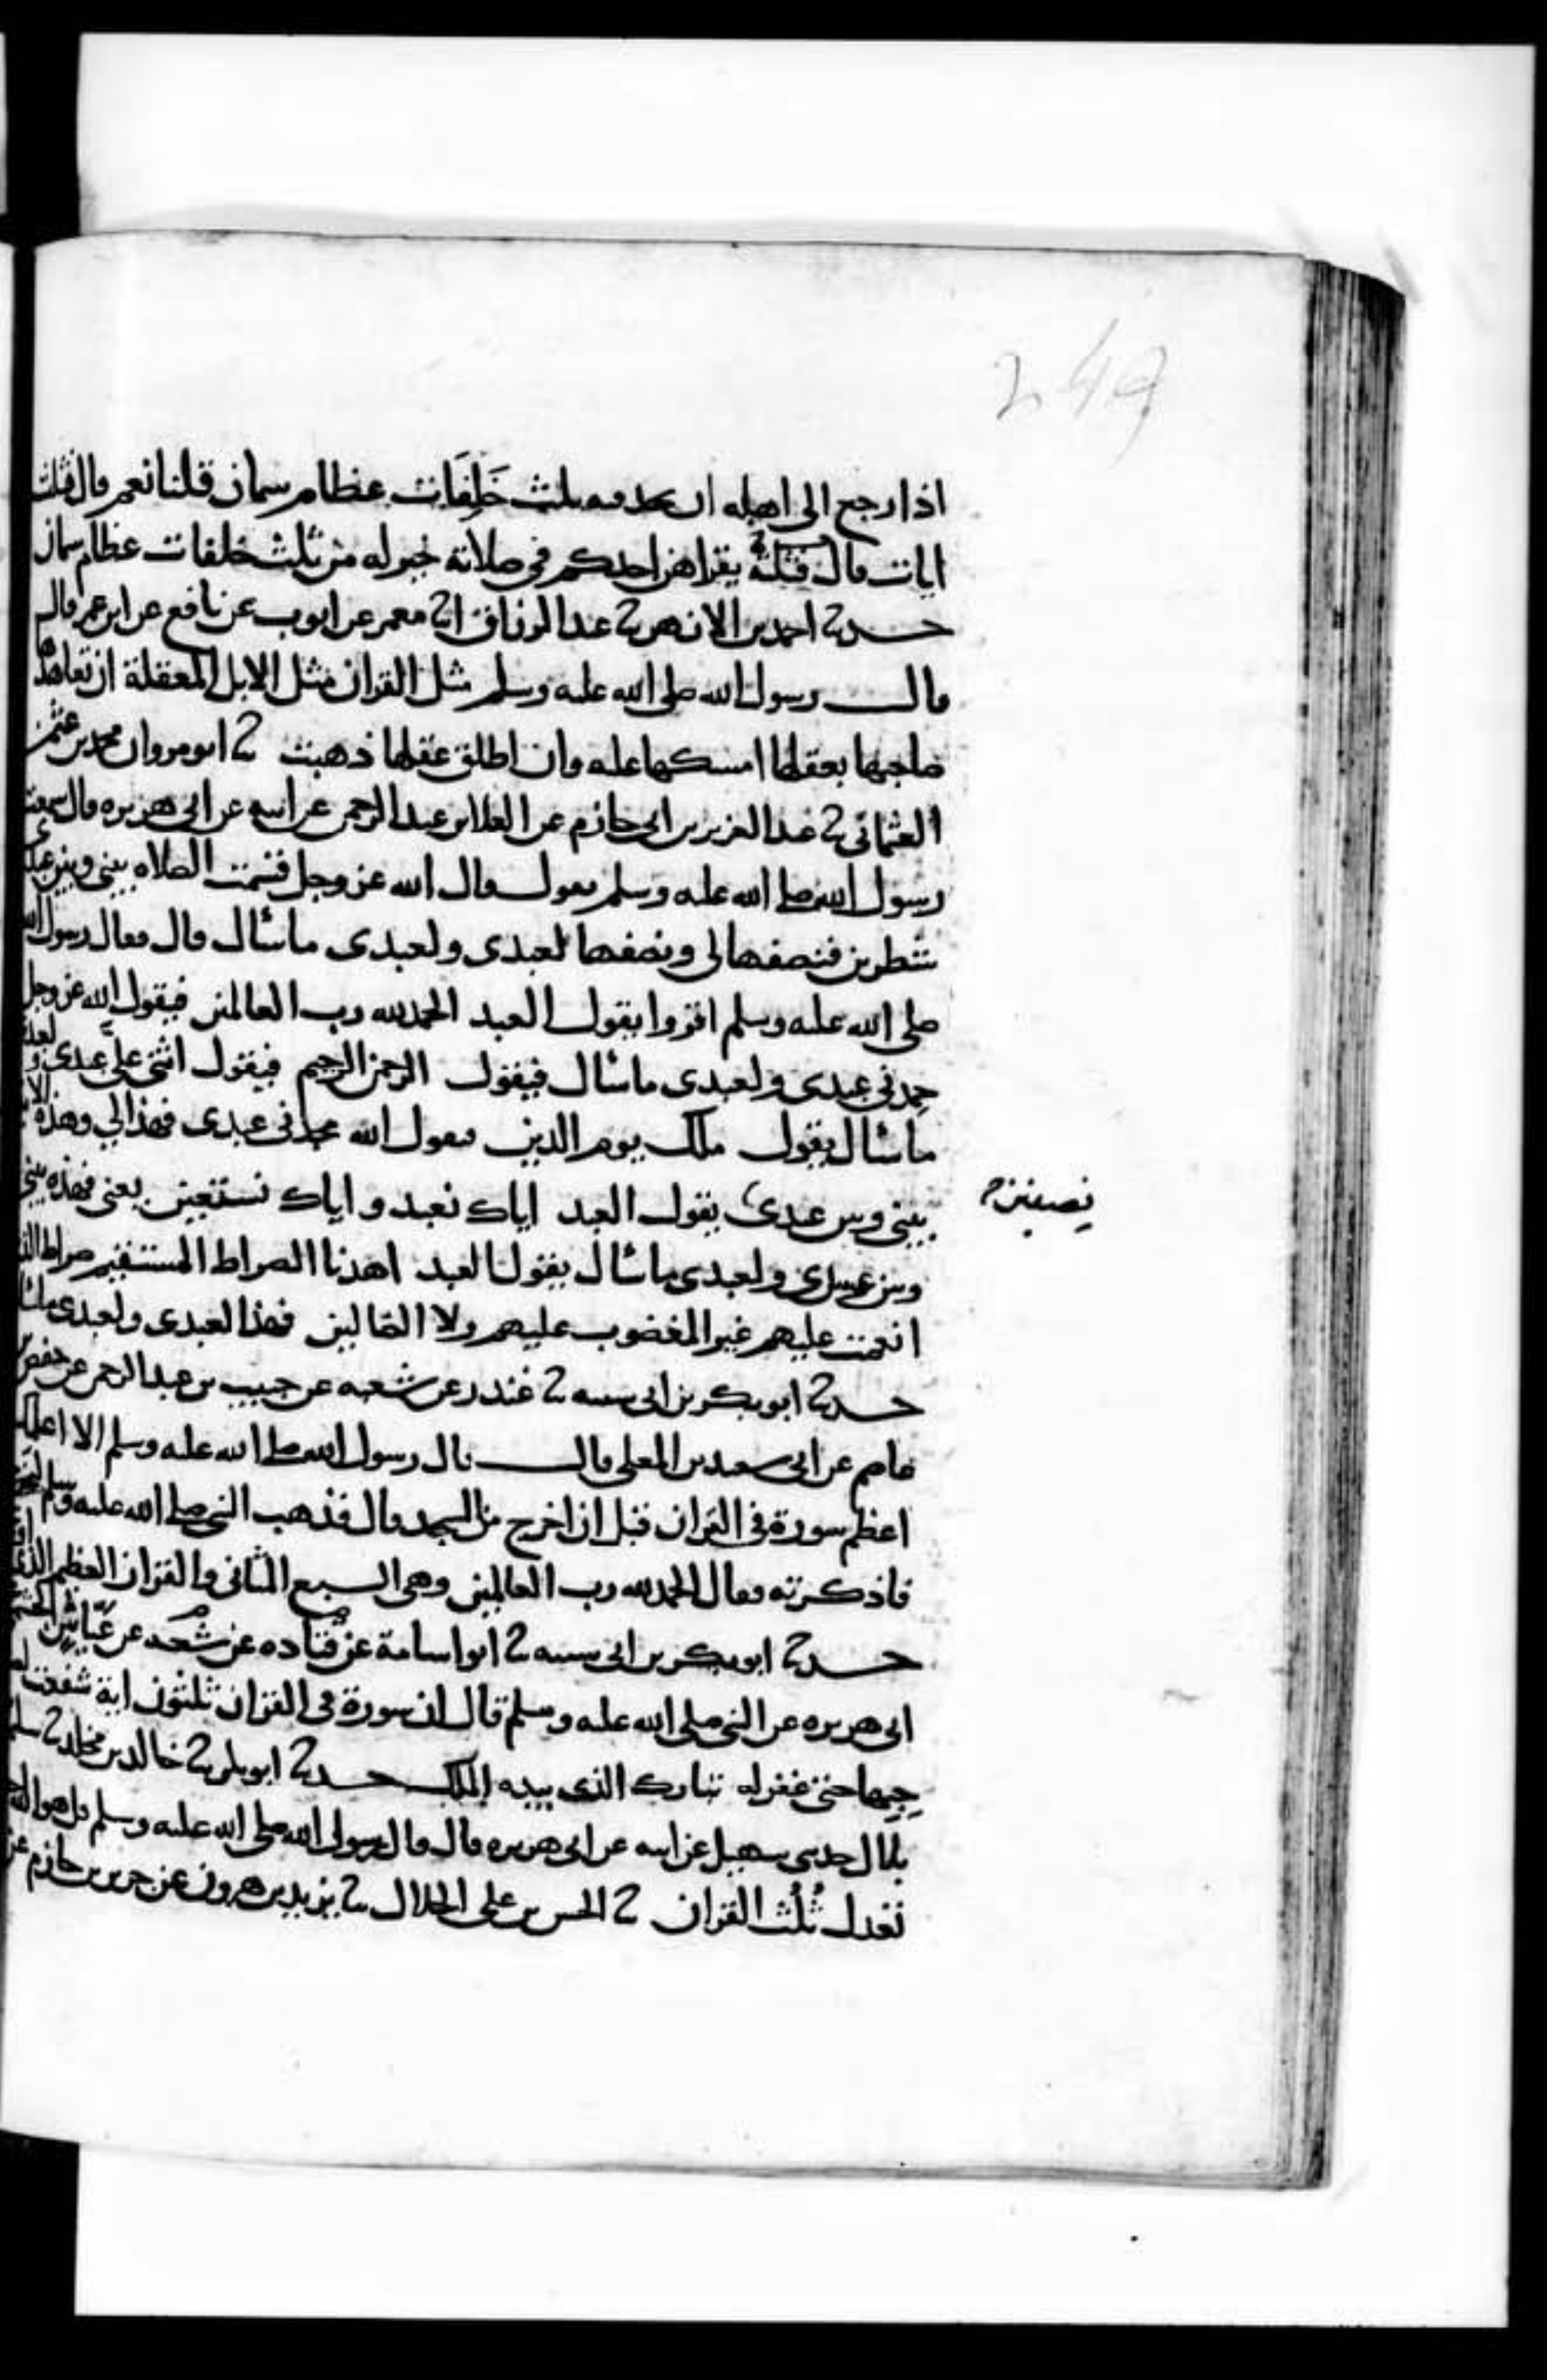 249
اذا رجع الى اهله ان يجد فيه ثلث خَلِفَات عظام سمان قلنا نعم قال فثلث
ايات قال فثلثة يقراهن احدكم في صلاته خير له من ثلث خلفات عظام سمان
حدثنا احمد بن الازهر ثنا عبد الرزاق انا معمر عن ايوب عن نافع عن ابن عمر قال
قال رسول الله صلى الله عليه وسلم مثل القران مثل الابل المعقلة ان تعاهدها
صاحبها بعقلها امسكها عليه وان اطلق عقلها ذهبت ثنا ابو مروان محمد بن عثمن
العثماني ثنا عبد العزيز بن ابي حازم عن العلا بن عبد الرحمن عن ابيه عن ابي هريره قال سمعت
رسول الله صلى الله عليه وسلم يقول قال الله عز وجل قسمت الصلاه بيني وبين عبدي
شطرين فنصفها لي ونصفها لعبدي ولعبدي ما سأل قال فقال رسول الله
صلى الله عليه وسلم اقروا يقول العبد الحمد لله رب العالمين فيقول الله عز وجل
حمدني عبدي ولعبدي ما سأل فيقول الرحمن الرحيم فيقول اثنى عليّ عبدي ولعبدي
ما سأل يقول ملك يوم الدين فيقول الله مجدني عبدي فهذا لي وهذه الاية
بيني وبين عبدي يقول العبد اياك نعبد واياك نستعين يعني فهذه بيني
نصفين
وبين عبدي ولعبدي ما سأل يقول العبد اهدنا الصراط المستقيم صراط الذين
انعمت عليهم غير المغضوب عليهم ولا الضالين فهذا لعبدي ولعبدي ما سأل
حدثنا ابو بكر بن ابي شيبه ثنا غندر عن شعبه عن حبيب بن عبد الرحمن عن حفص بن
عاصم عن ابي سعيد بن المعلى قال قال رسول الله صلى الله عليه وسلم الا اعلمك
اعظم سورة في القران قبل ان اخرج من المسجد قال فذهب النبي صلى الله عليه وسلم ليخرج
فاذكرته فقال الحمد لله رب العالمين وهي السبع المثاني والقران العظيم الذي
حدثنا ابو بكر بن ابي شيبه ثنا ابو اسامة عن قتاده عن شعبه عن عبّاس الجشمي
ابي هريره عن النبي صلى الله عليه وسلم قال ان سورة في القران ثلثون اية شفعت
صاحبها حتى غفر له تبارك الذي بيده الملك حدثنا ابو بكر ثنا خالد بن مخلد ثنا سليمن
بلال حدثني سهيل عن ابيه عن ابي هريره قال قال رسول الله صلى الله عليه وسلم قل هو الله
تعدل ثُلُث القران ثنا الحسن بن علي الخلال ثنا يزيد بن هرون عن جرير بن حازم عن